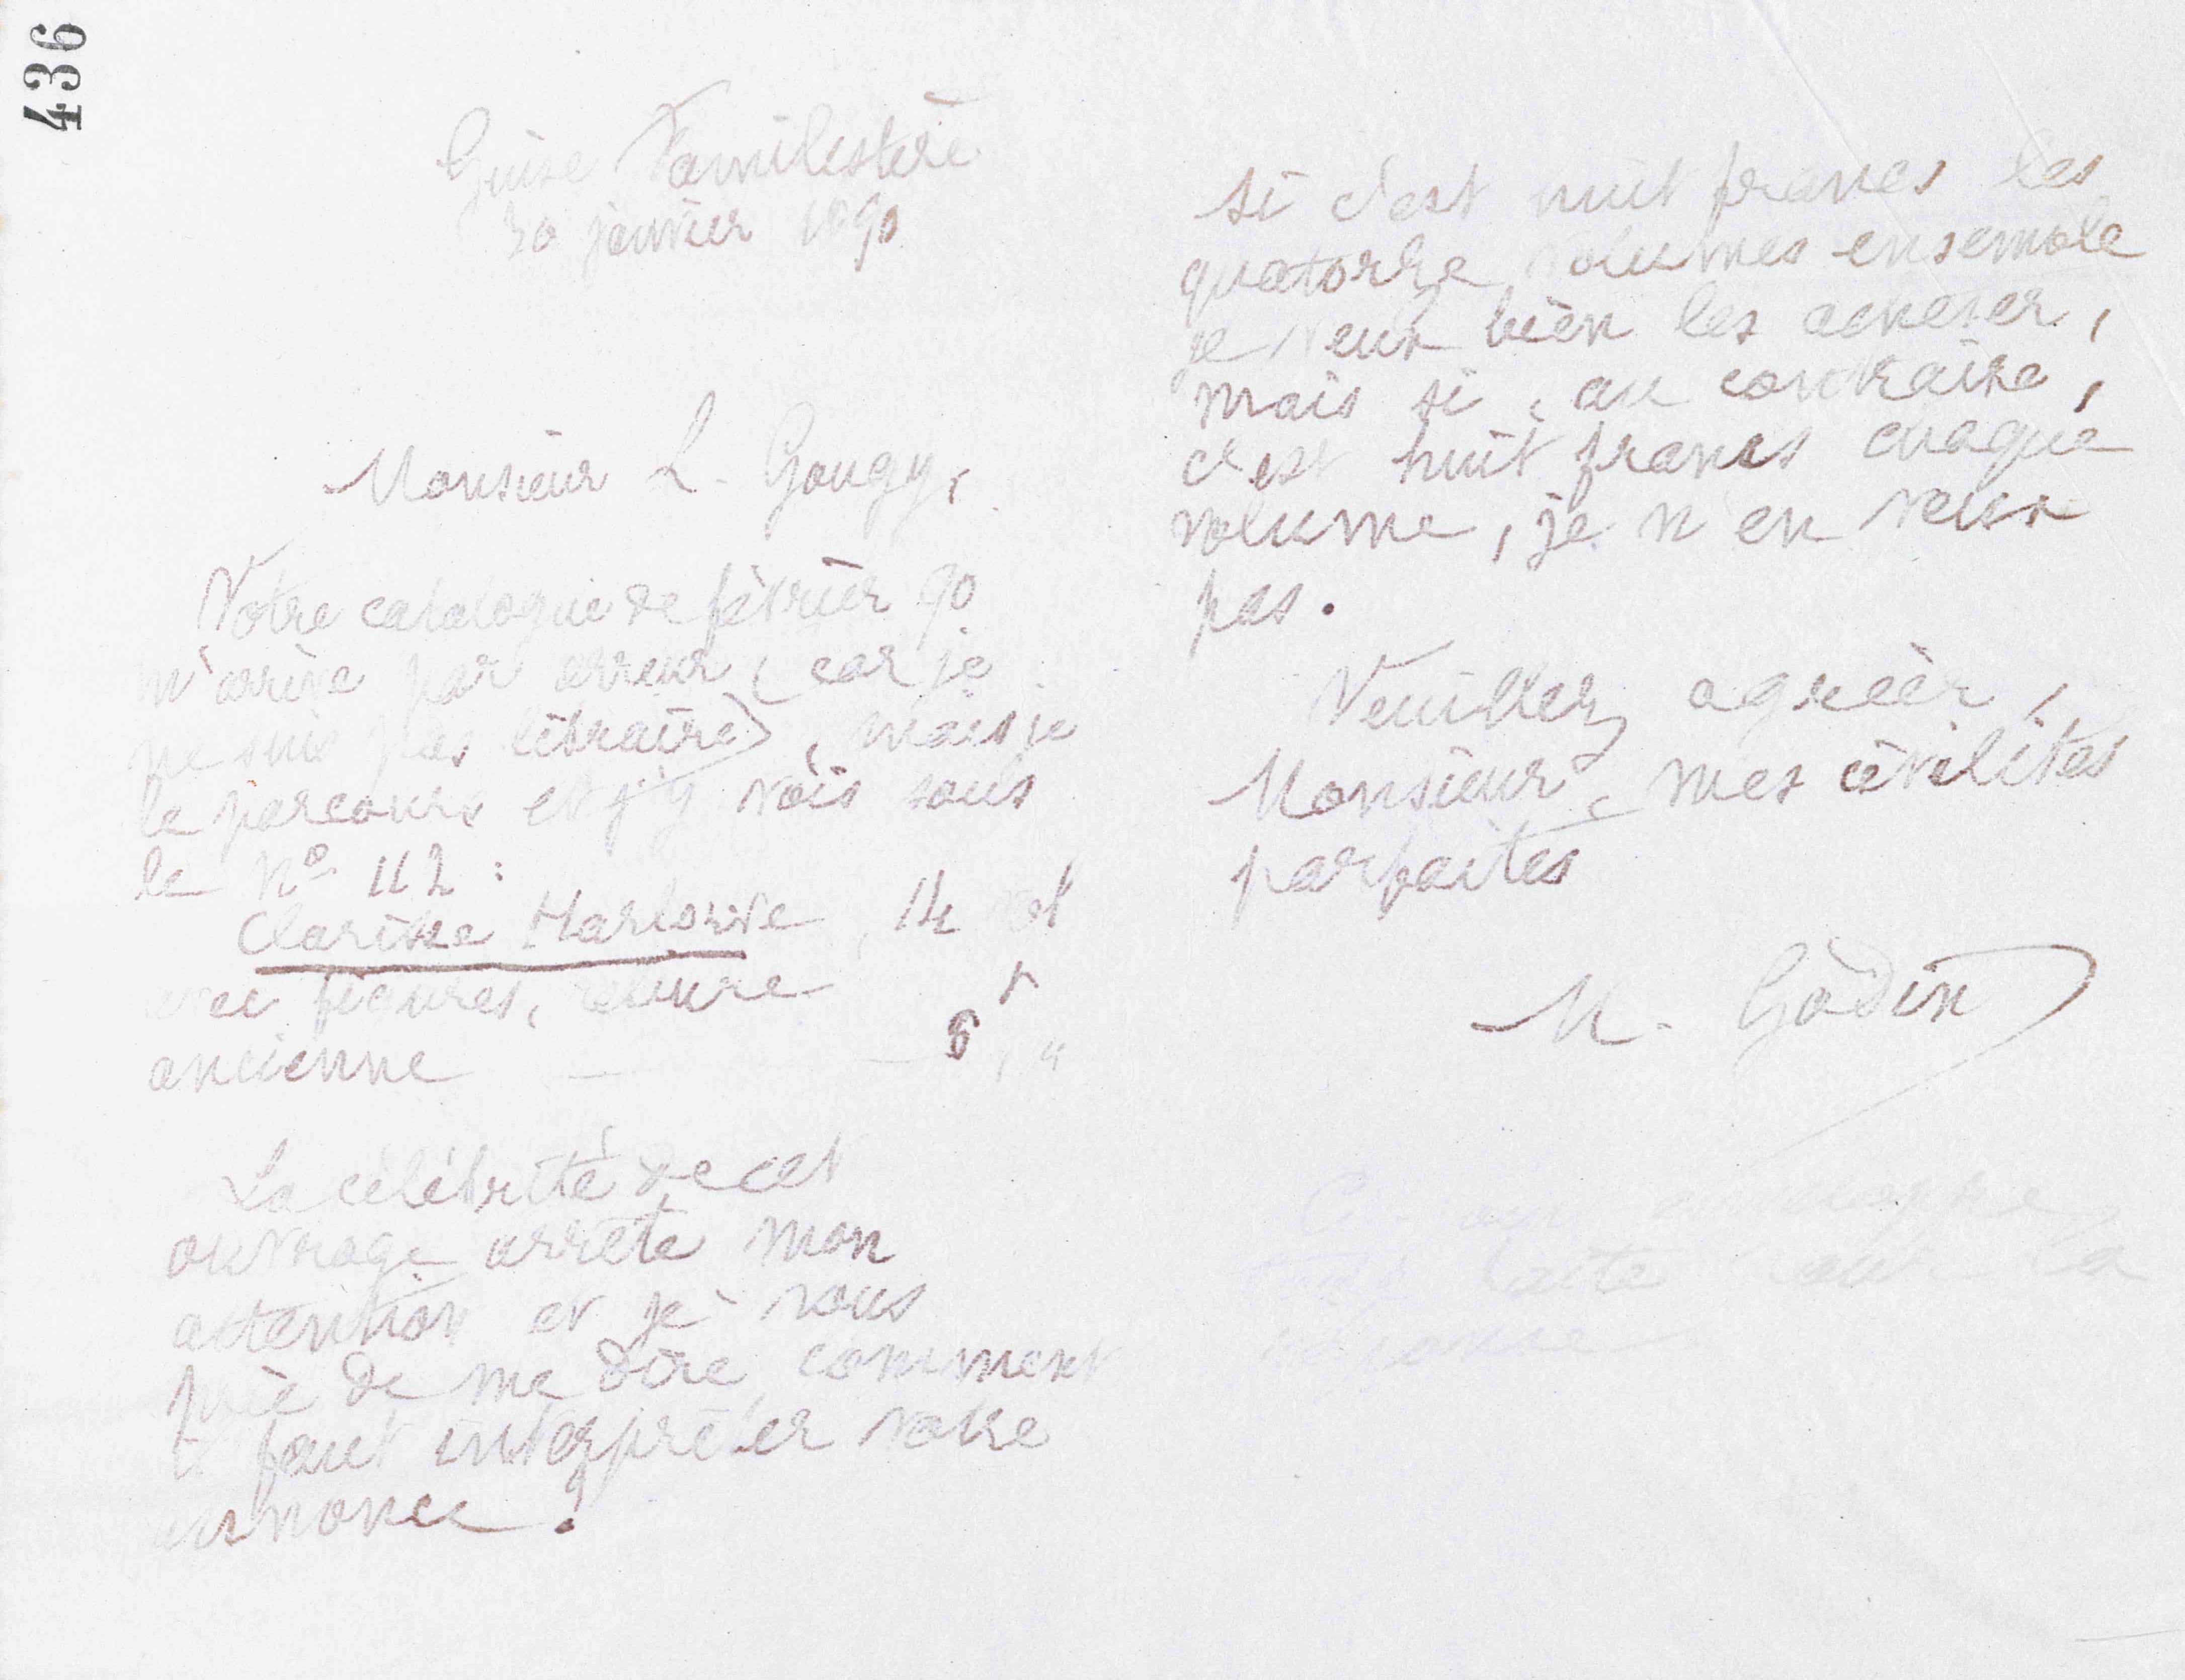 436
Guise Familistère
30 janvier 1890
Monsieur L. Gougy,
Votre catalogue de février 90
m'arrive par erreur (car je
ne suis pas libraire), mais je
le parcours et j'y vois sous
le nº 112 :
Clarisse Harlowe, 14 vol
avec figures, reliure
ancienne — — 8f, "
La célébrité de cet
ouvrage arrête mon
attention et je vous
prie de me dire comment
il faut interpréter votre
annonce :
si c'est huit francs les
quatorze volumes ensemble
je veux bien les acheter,
mais si, au contraire,
c'est huit francs chaque
volume, je n'en veux
pas.
Veuillez agréer,
Monsieur, mes civilités
parfaites
M. Godin
enveloppe
toute faite pour la
réponse